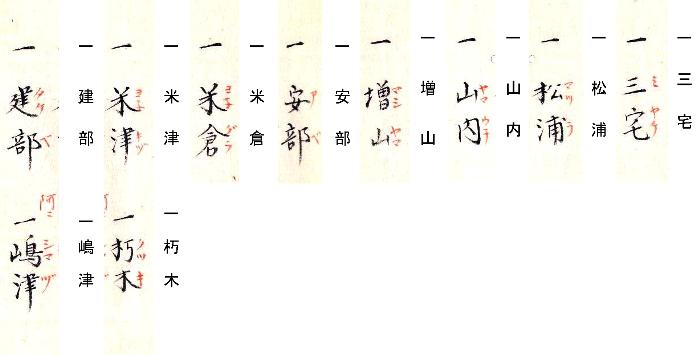 一 三 宅
一 三宅
ミ ヤケ
一 松 浦
一 松浦
マツ ラ
一 山 内
一 山内
ヤマ ウチ
一 増 山
一 増山
マシ ヤマ
一 安 部
一 安部
ア ベ
一 米 倉
一 米倉
ヨネ グラ
一 米 津
一 米津
ヨネ
一 建 部
一 建部
タケ ベ
一 朽 木
一 朽木
クツ キ
一 嶋 津
一 嶋津
シマ ヅ